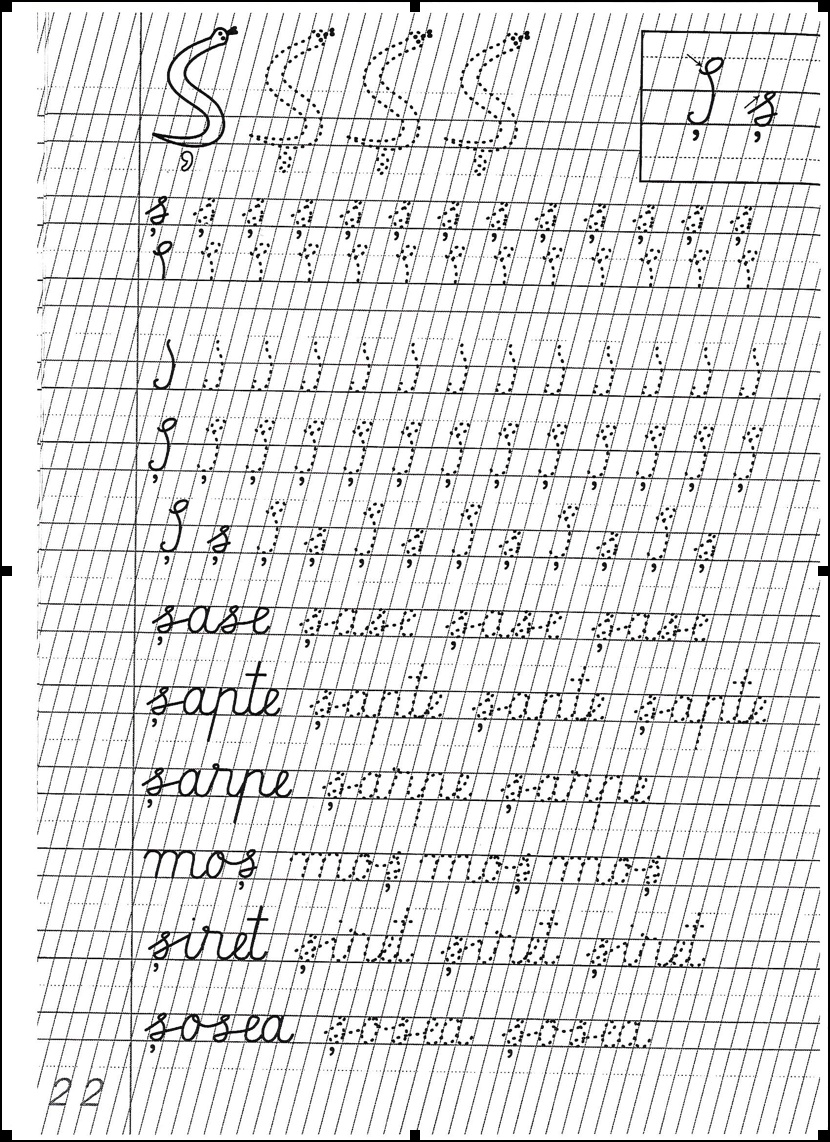 Ș Ș Ș Ș
Ș ș
ș ș ș ș ș ș ș ș ș ș ș ș ș
Ș Ș Ș Ș Ș Ș Ș Ș Ș Ș Ș Ș Ș
Ș ș Ș ș Ș ș Ș ș Ș ș Ș ș
șase șase șase șase
șapte șapte șapte șapte
șarpe șarpe șarpe
moș moș moș moș
șiret șiret șiret șiret
șosea șosea șosea
22